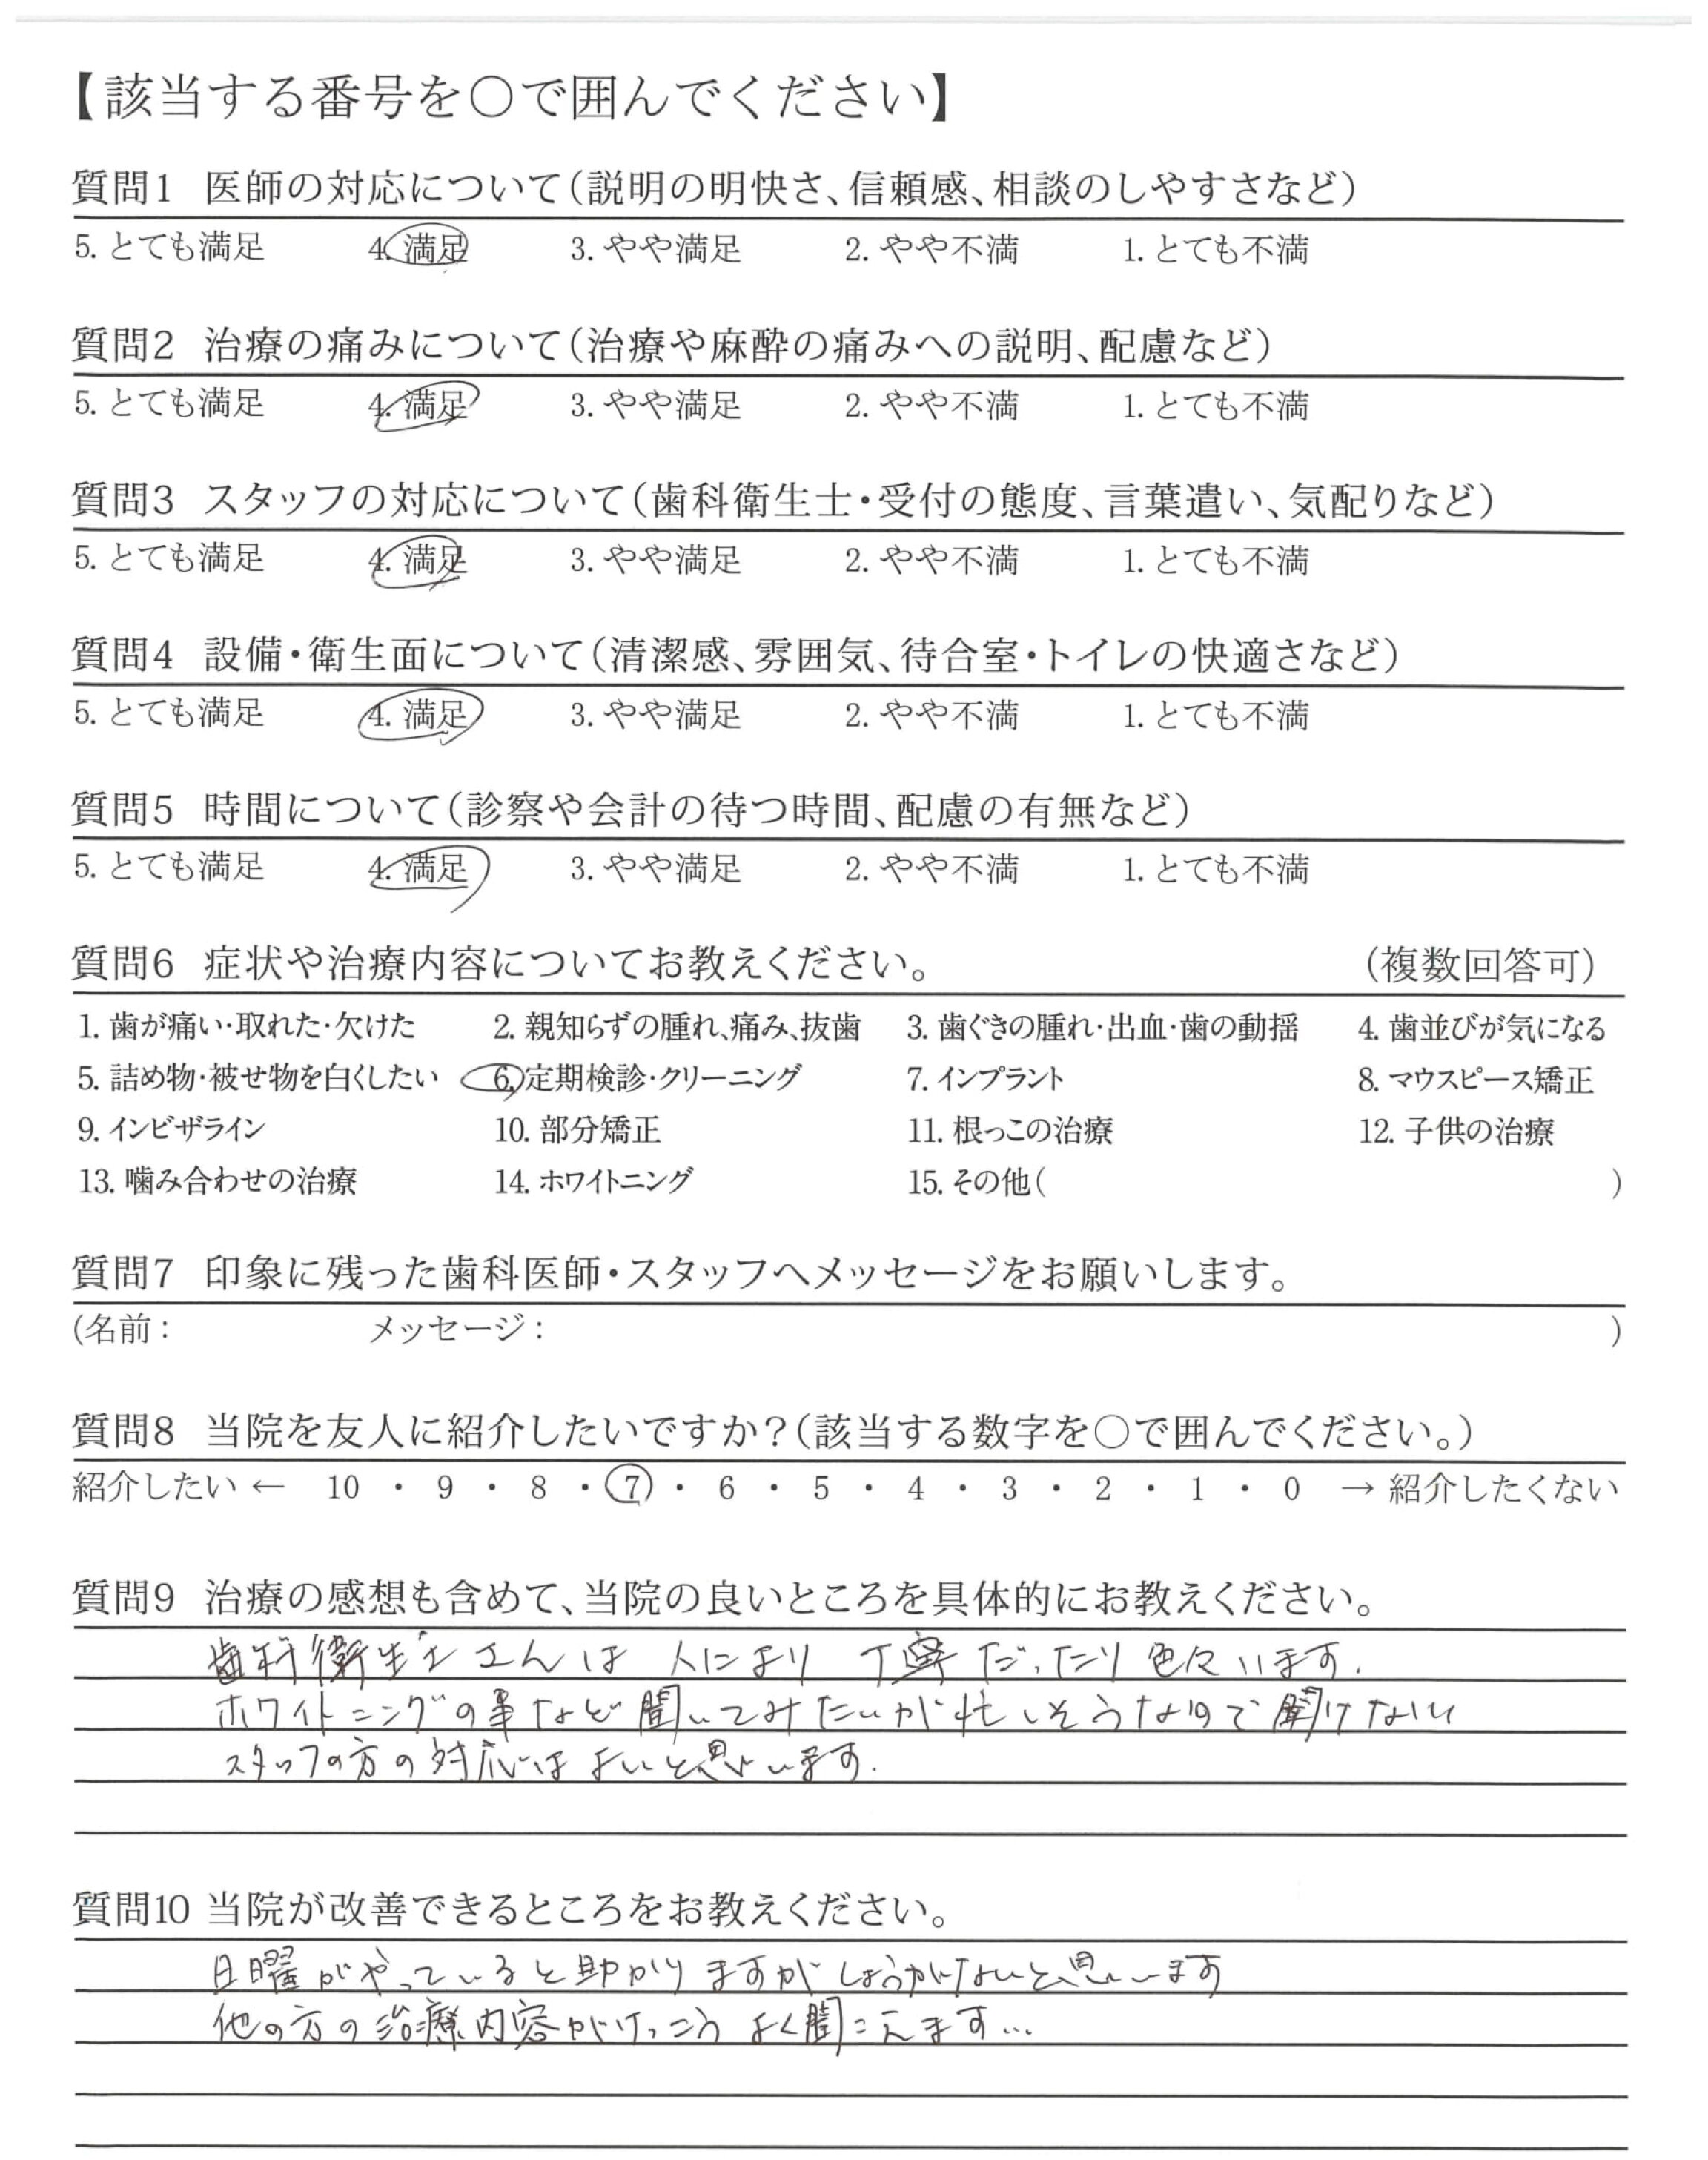 【該当する番号を○で囲んでください】
質問1 医師の対応について(説明の明快さ、信頼感、相談のしやすさなど)
5. とても満足 4. 満足 3. やや満足 2. やや不満 1. とても不満
質問2 治療の痛みについて(治療や麻酔の痛みへの説明、配慮など)
5. とても満足 4. 満足 3. やや満足 2. やや不満 1. とても不満
質問3 スタッフの対応について(歯科衛生士・受付の態度、言葉遣い、気配りなど)
5. とても満足 4. 満足 3. やや満足 2. やや不満 1. とても不満
質問4 設備・衛生面について(清潔感、雰囲気、待合室・トイレの快適さなど)
5. とても満足 4. 満足 3. やや満足 2. やや不満 1. とても不満
質問5 時間について(診察や会計の待つ時間、配慮の有無など)
5. とても満足 4. 満足 3. やや満足 2. やや不満 1. とても不満
質問6 症状や治療内容についてお教えください。 (複数回答可)
1. 歯が痛い・取れた・欠けた 2. 親知らずの腫れ、痛み、抜歯 3. 歯ぐきの腫れ・出血・歯の動揺 4. 歯並びが気になる
5. 詰め物・被せ物を白くしたい 6. 定期検診・クリーニング 7. インプラント 8. マウスピース矯正
9. インビザライン 10. 部分矯正 11. 根っこの治療 12. 子供の治療
13. 噛み合わせの治療 14. ホワイトニング 15. その他( )
質問7 印象に残った歯科医師・スタッフへメッセージをお願いします。
(名前: メッセージ: )
質問8 当院を友人に紹介したいですか?(該当する数字を○で囲んでください。)
紹介したい ← 10 ・ 9 ・ 8 ・ 7 ・ 6 ・ 5 ・ 4 ・ 3 ・ 2 ・ 1 ・ 0 → 紹介したくない
質問9 治療の感想も含めて、当院の良いところを具体的にお教えください。
歯科衛生士さんは人により丁寧だったり色々います.
ホワイトニングの事など聞いてみたいが忙しそうなので聞けない
スタッフの方の対応はよいと思います.
質問10 当院が改善できるところをお教えください。
日曜がやっていると助かりますがしょうがないと思います
他の方の治療内容がけっこうよく聞こえます…